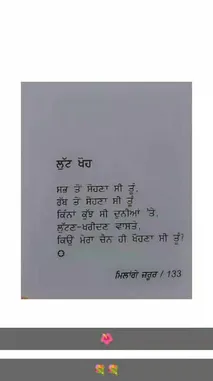 ਲੁੱਟ ਖੋਹ
ਸਭ ਤੋਂ ਸੋਹਣਾ ਸੀ ਤੂੰ,
ਰੱਬ ਤੋਂ ਸੋਹਣਾ ਸੀ ਤੂੰ
ਕਿੰਨਾ ਕੁੱਝ ਸੀ ਦੁਨੀਆ 'ਤੇ,
ਲੁੱਟਣ-ਖਰੀਦਣ ਵਾਸਤੇ,
ਕਿਉਂ ਮੇਰਾ ਚੈਨ ਹੀ ਖੋਹਣਾ ਸੀ ਤੂੰ?
ਮਿਲਾਂਗੇ ਜ਼ਰੂਰ / 133